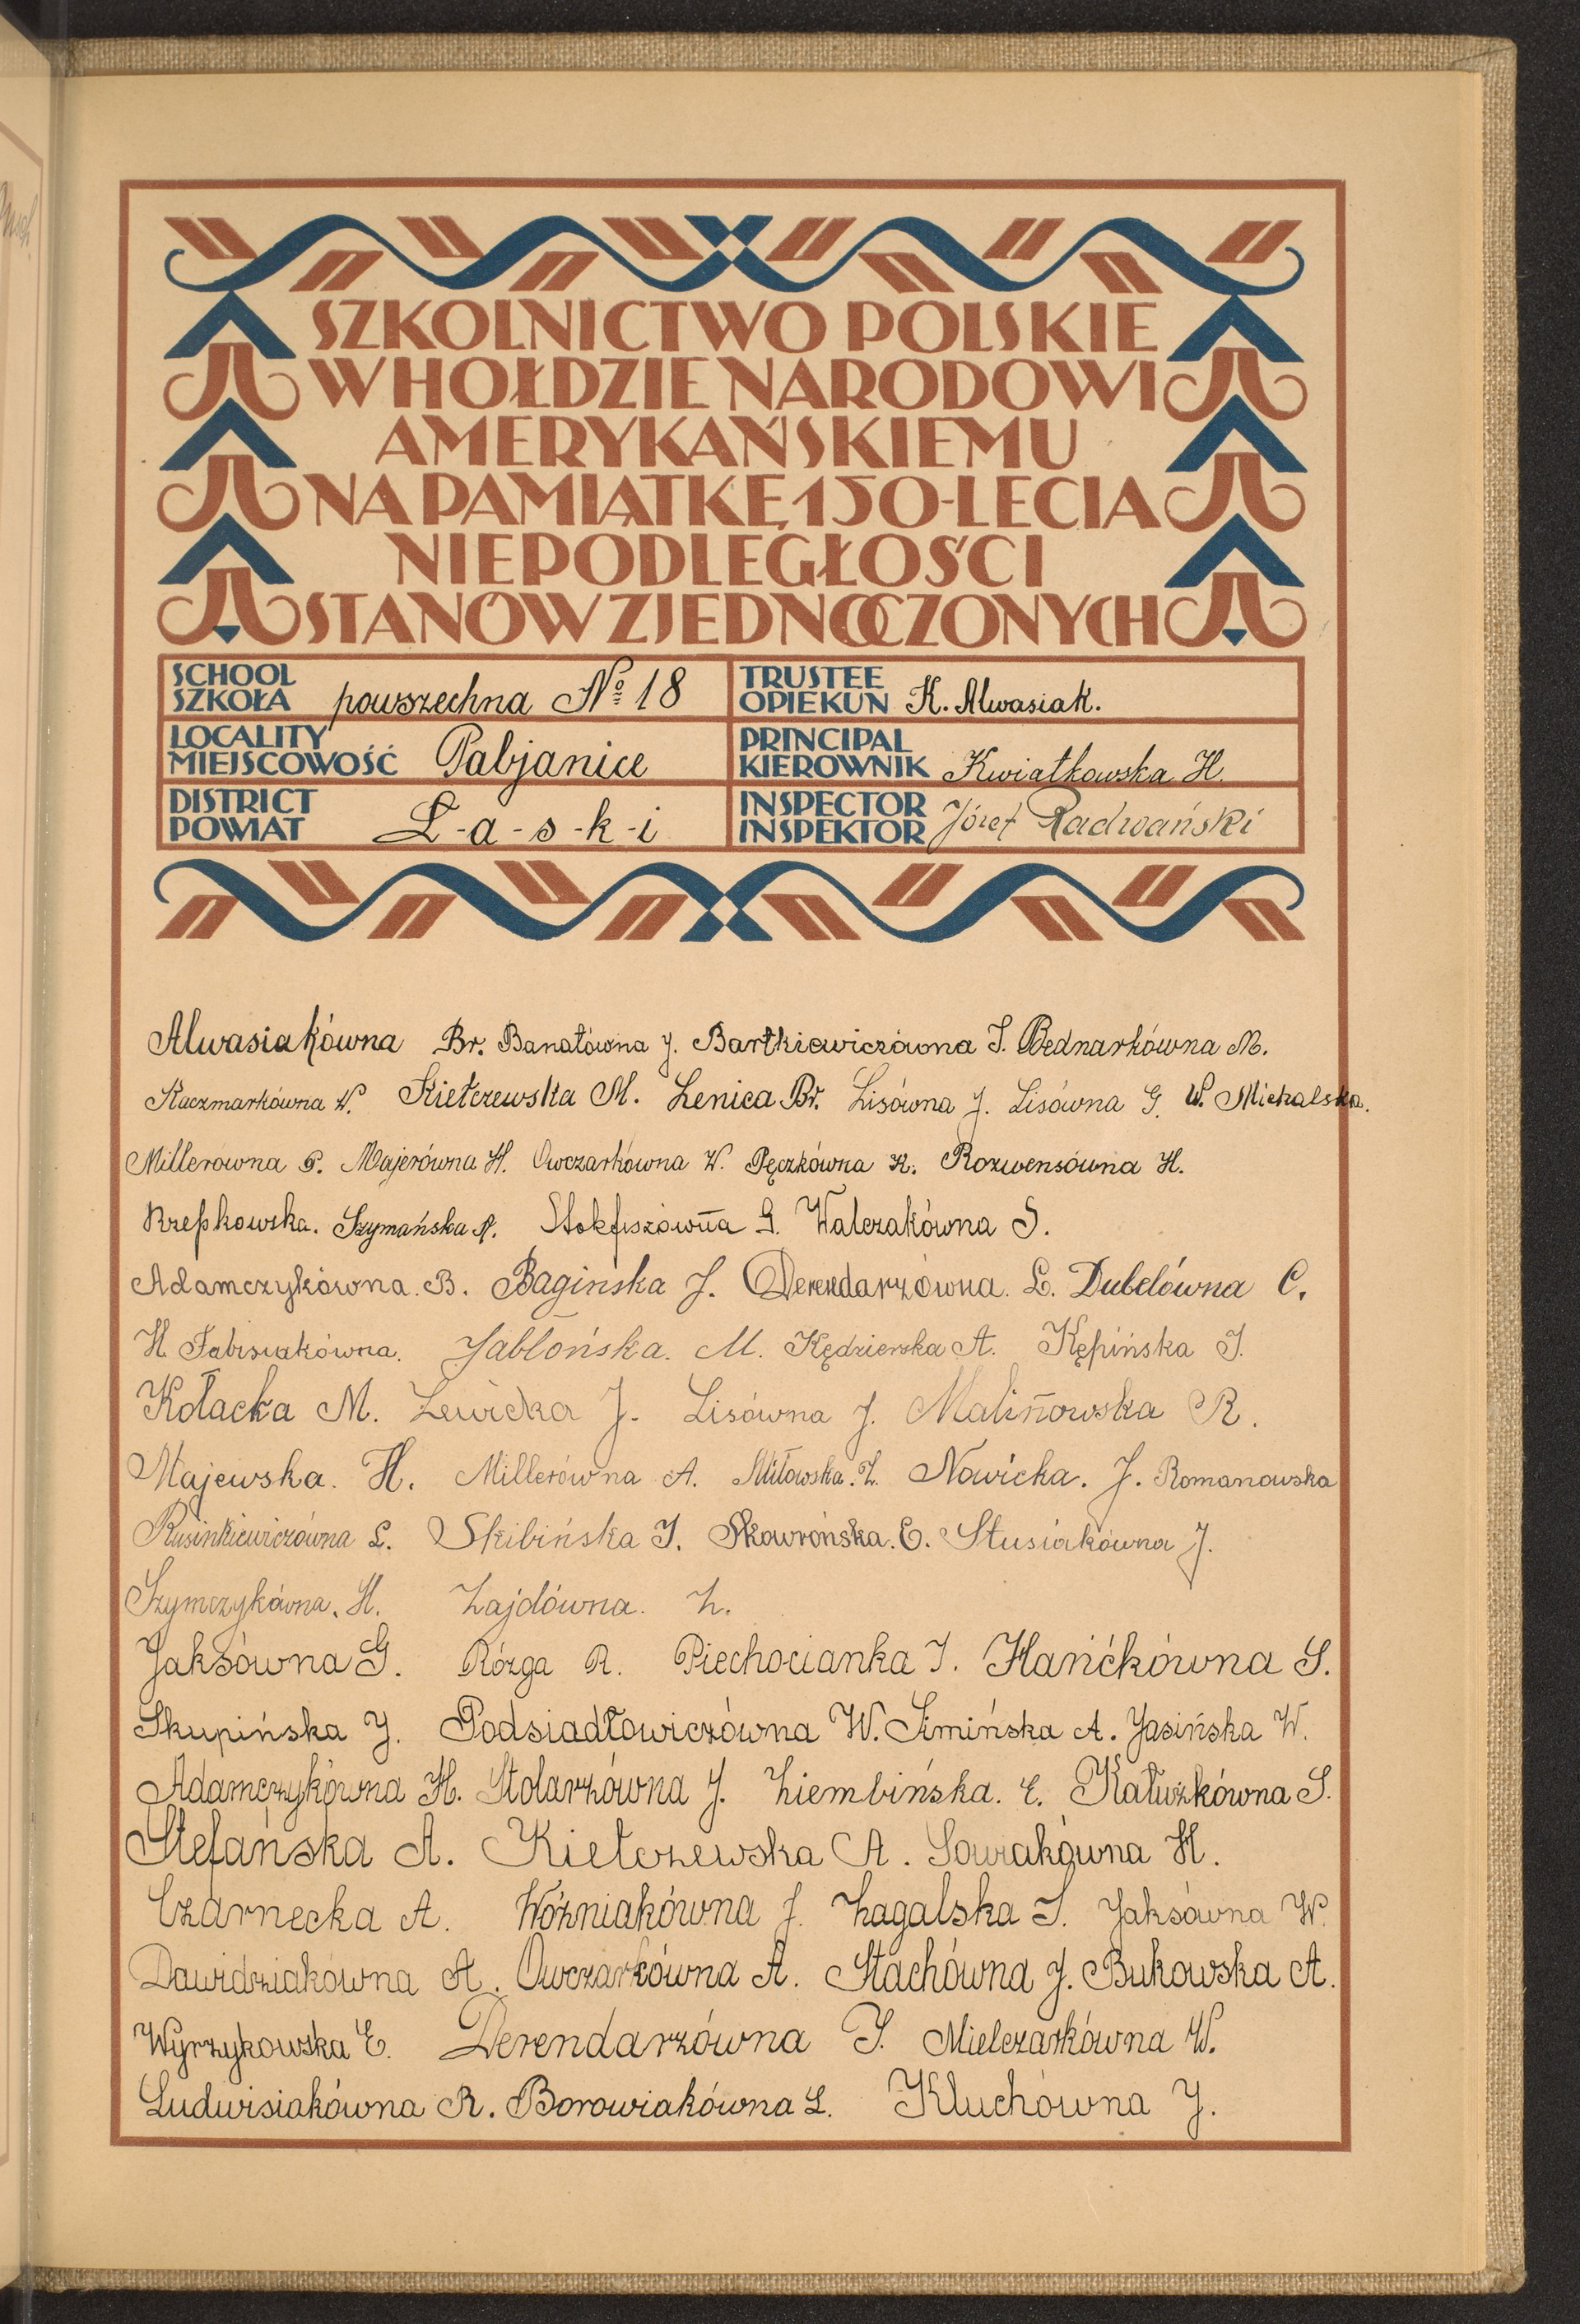 SZKOLNICTWO POLSKIE
W HOŁDZIE NARODOWI
AMERYKAŃSKIEMU
NA PAMIĄTKĘ 150-LECIA
NIEPODLEGŁOŚCI
STANÓW ZJEDNOCZONYCH
SCHOOL
SZKOŁA powszechna № 18
TRUSTEE
OPIEKUN K. Alwasiak.
LOCALITY
MIEJSCOWOŚĆ Pabjanice
PRINCIPAL
KIEROWNIK Kwiatkowska H.
DISTRICT
POWIAT Ł-a-s-k-i
INSPECTOR
INSPEKTOR Józef Radwański
Alwasiakówna Br. Banatówna J. Bartkiewiczówna I. Bednarkówna M.
Kaczmarkówna W. Kiełczewska M. Lenica Br. Lisówna J. Lisówna G. W. Michalska.
Millerówna G. Majerówna H. Owczarkówna W. Pęczkówna K. Rozwensówna H.
Rzepkowska. Szymańska A. Stokfiszówna G. Walczakówna S.
Adamczykówna. B. Bagińska J. Derendarzówna. L. Dubelówna C.
H. Fabisiakówna. Jabłońska. M. Kędzierska A. Kępińska I.
Kołacka M. Lewicka J. Lisówna J. Malinowska R.
Majewska. H. Millerówna A. Miłowska. Z. Nowicka. J. Romanowska
Rusinkiewiczówna L. Skibińska I. Skowrońska. E. Stusiakówna J.
Szymczykówna. H. Zajdówna. Z.
Jaksówna G. Rózga R. Piechocianka I. Hańćkówna S.
Skupińska J. Podsiadłowiczówna W. Simińska A. Jasińska W.
Adamczykówna H. Stolarzówna J. Ziembińska. E. Kałużkówna S.
Stefańska A. Kiełczewska A. Sowiakówna H.
Czarnecka A. Woźniakówna J. Zagalska I. Jaksówna W.
Dawidziakówna A. Owczarkówna A. Stachówna J. Bukowska A.
Wyrzykowska E. Derendarzówna I. Mielczarkówna W.
Ludwisiakówna R. Borowiakówna L. Kluchówna J.